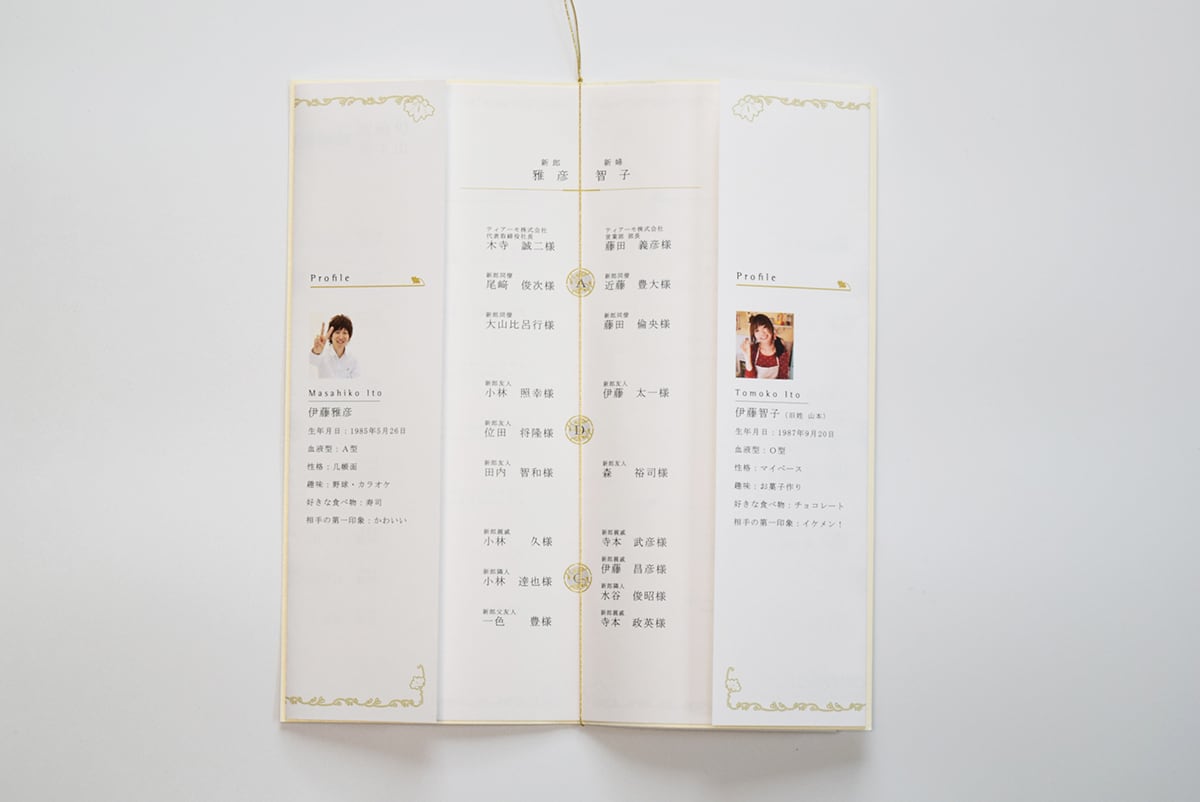 Profile
Masahiko Ito
伊藤雅彦
生年月日：1985年5月26日
血液型：A型
性格：几帳面
趣味：野球・カラオケ
好きな食べ物：寿司
相手の第一印象：かわいい
新郎 新婦
雅彦 智子
ティアーモ株式会社
代表取締役社長
木寺 誠二様
ティアーモ株式会社
営業部 部長
藤田 義彦様
新郎同僚
尾﨑 俊次様
A
新郎同僚
近藤 豊大様
新郎同僚
大山比呂行様
新郎同僚
藤田 倫央様
新郎友人
小林 照幸様
新郎友人
伊藤 太一様
新郎友人
位田 将隆様
D
新郎友人
田内 智和様
新郎友人
森 裕司様
新郎親戚
小林 久様
新郎親戚
寺本 武彦様
新郎親戚
伊藤 昌彦様
新郎隣人
小林 達也様
C
新郎隣人
水谷 俊昭様
新郎父友人
一色 豊様
新郎親戚
寺本 政英様
Profile
Tomoko Ito
伊藤智子（旧姓 山本）
生年月日：1987年9月20日
血液型：O型
性格：マイペース
趣味：お菓子作り
好きな食べ物：チョコレート
相手の第一印象：イケメン！